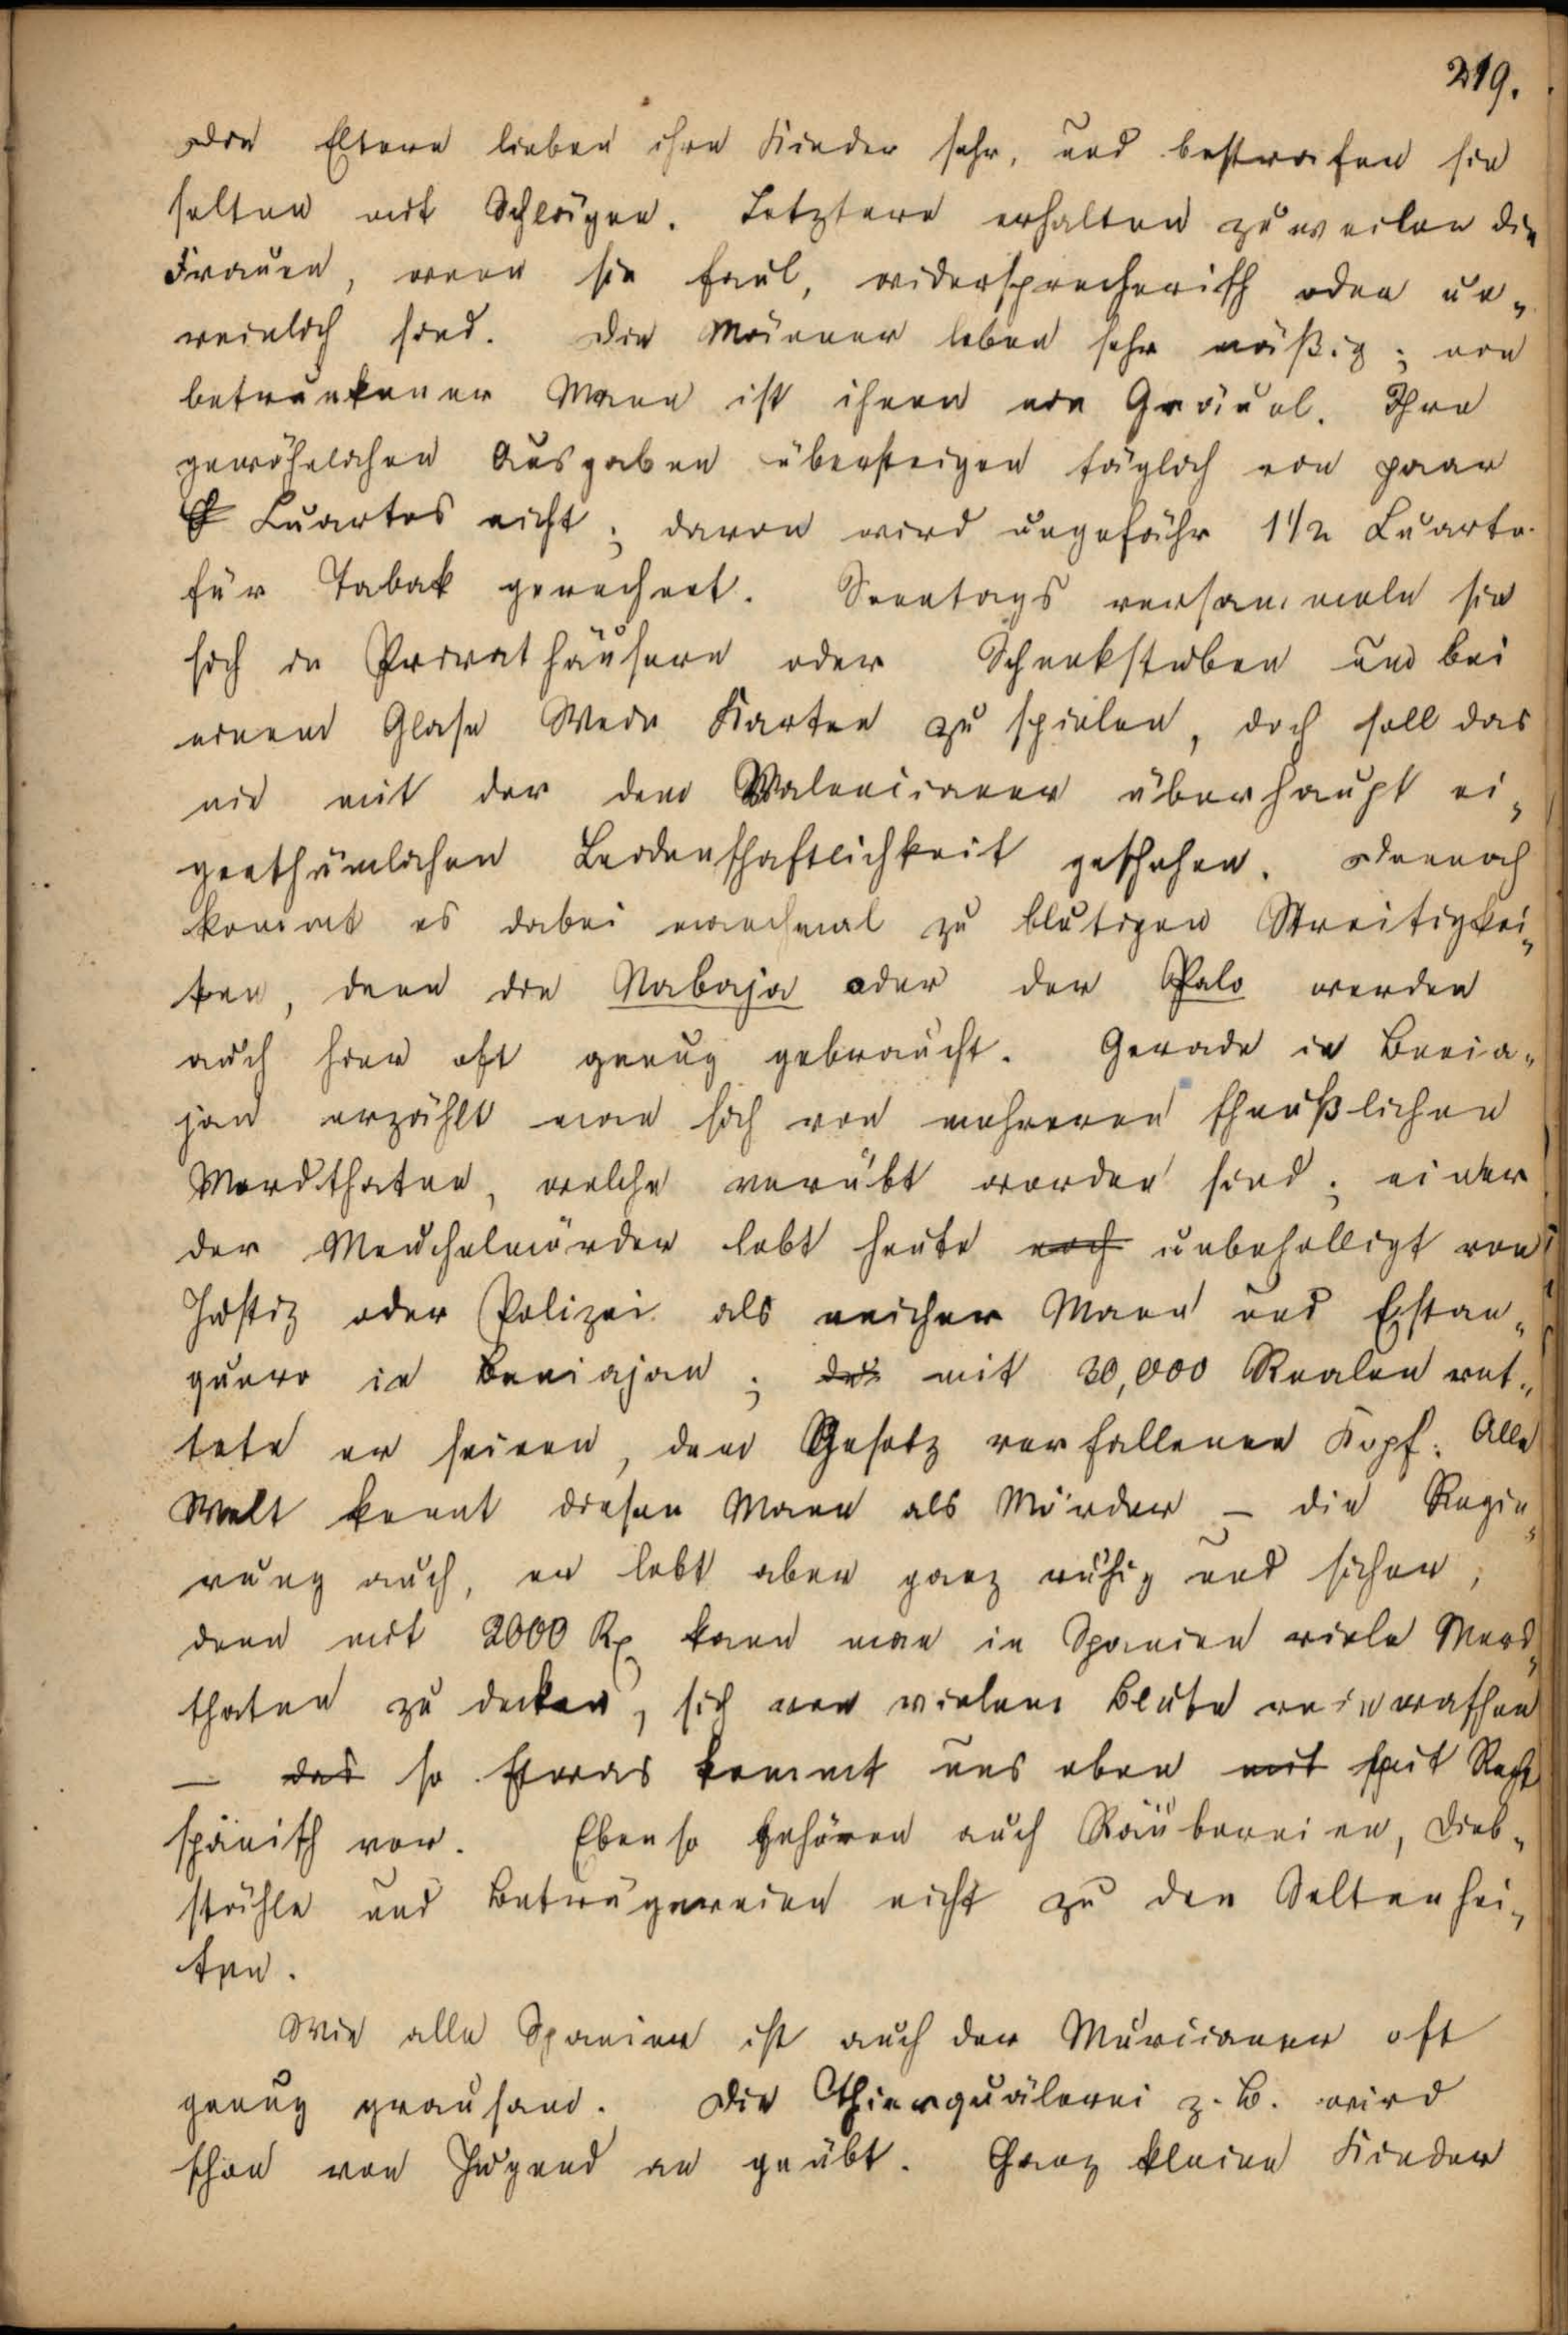 219.
Die Eltern lieben ihre Kinder sehr, und bestrafen sie
selten mit Schlägen. Letztere erhalten zuweilen die
Frauen, wenn sie faul, widersprecherisch oder un-
reinlich sind. Die Männer leben sehr mäßig; ein
betrunkener Mann ist ihnen ein Gräuel. Ihre
gewöhnlichen Ausgaben übersteigen täglich ein paar
Cuartos nicht; davon wird ungefähr 1 1/2 Cuarto
für Tabak gerechnet. Sonntags versammeln sie
sich in Privathäusern oder Schenkstuben um bei
einem Glase Wein Karten zu spielen, doch soll das
nie mit der dem Valencianer überhaupt ei-
genthümlichen Leidenschaftlichkeit geschehen. Dennoch
kommt es dabei manchmal zu blutigen Streitigkei-
ten, denn die Nabaja oder der Palo werden
auch hier oft genug gebraucht. Gerade in Benia-
jan erzählt man sich von mehreren scheußlichen
Mordthaten, welche verübt worden sind; einer
der Meuchelmörder lebt heute noch unbehelligt von
Justiz oder Polizei als reicher Mann und Estan-
quero in Beniajan; das mit 30,000 Realen ret-
tete er seinen, dem Gesetz verfallenen Kopf. Alle
Welt kennt diesen Mann als Mörder – die Regie-
rung auch, er lebt aber ganz ruhig und sicher,
denn mit 2000 Rx kann man in Spanien viele Mord-
thaten zu decken, sich von vielem Blute reinwaschen
— das so Etwas kommt uns eben mit Recht
spänisch vor. Ebenso gehören auch Räubereien, Dieb-
stähle und Betrügereien nicht zu den Seltenhei-
ten.
Wie alle Spanier ist auch der Murcianer oft
genug grausam. Die Thierquälerei z. B. wird
schon von Jugend an geübt. Ganz kleine Kinder